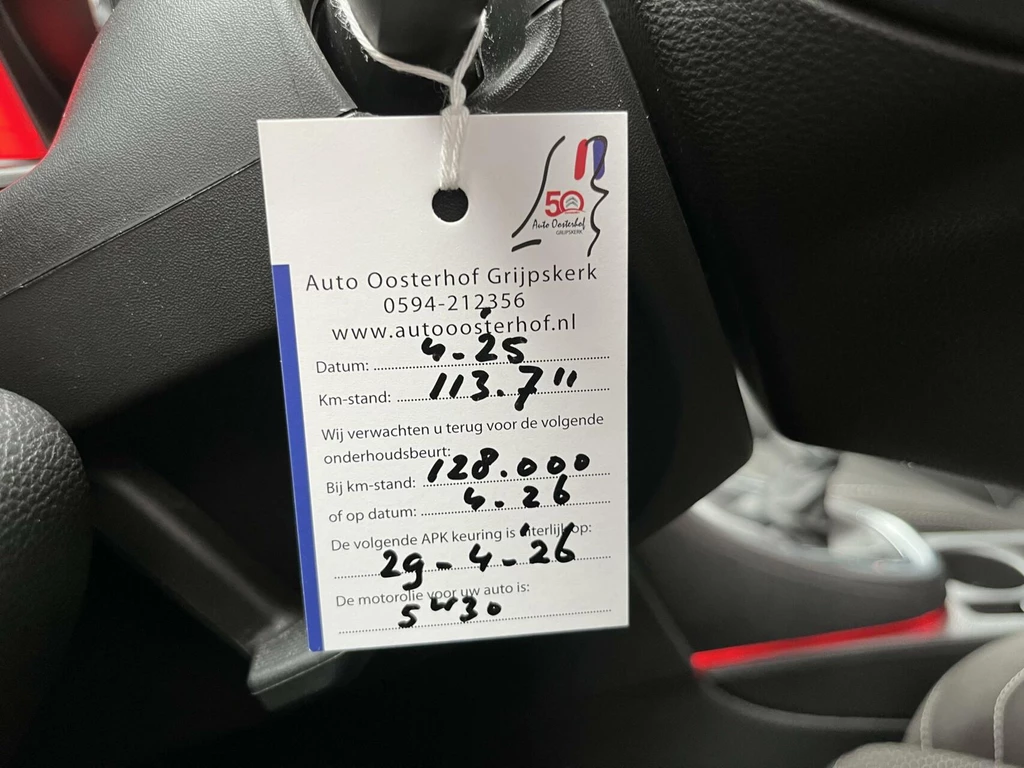 50
Auto Oosterhof
GRIJPSKERK
Auto Oosterhof Grijpskerk
0594-212356
www.autooosterhof.nl
Datum: 4-'25
Km-stand: 113.711
Wij verwachten u terug voor de volgende
onderhoudsbeurt:
Bij km-stand: 128.000
of op datum: 4-26
De volgende APK keuring is uiterlijk op:
29-4-'26
De motorolie voor uw auto is:
5w30